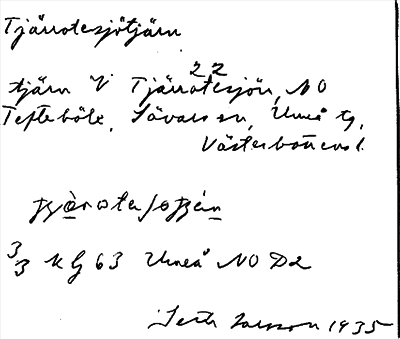 Tjärrotesjötjärn
22
tjärn V Tjärrotesjön, NO
Tefteböle, Sävars sn, Umeå tg,
Västerbottens l.
3/3 K G 63 Umeå NO D2
Seth Larsson 1935